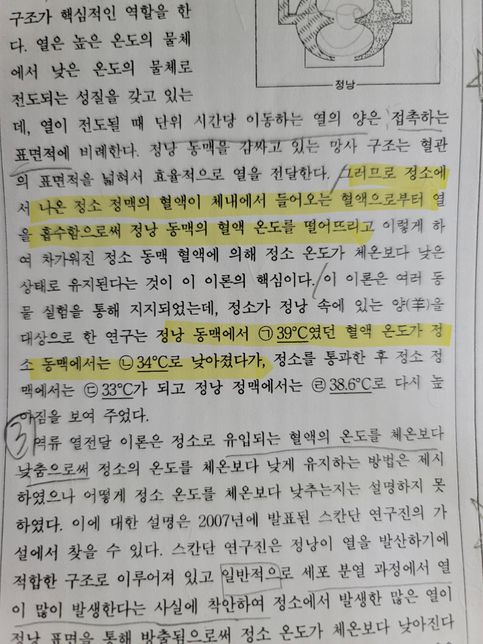 구조가 핵심적인 역할을 한
다. 열은 높은 온도의 물체
에서 낮은 온도의 물체로
전도되는 성질을 갖고 있는
정낭
데, 열이 전도될 때 단위 시간당 이동하는 열의 양은 접촉하는
표면적에 비례한다. 정낭 동맥을 감싸고 있는 망사 구조는 혈관
의 표면적을 넓혀서 효율적으로 열을 전달한다. 그러므로 정소에
서 나온 정소 정맥의 혈액이 체내에서 들어오는 혈액으로부터 열
을 흡수함으로써 정낭 동맥의 혈액 온도를 떨어뜨리고 이렇게 하
여 차가워진 정소 동맥 혈액에 의해 정소 온도가 체온보다 낮은
상태로 유지된다는 것이 이 이론의 핵심이다. 이 이론은 여러 동
물 실험을 통해 지지되었는데, 정소가 정낭 속에 있는 양(羊)을
대상으로 한 연구는 정낭 동맥에서 ㉠39℃였던 혈액 온도가 정
소 동맥에서는 ㉡34℃로 낮아졌다가, 정소를 통과한 후 정소 정
맥에서는 ㉢33℃가 되고 정낭 정맥에서는 ㉣38.6℃로 다시 높
아짐을 보여 주었다.
3 역류 열전달 이론은 정소로 유입되는 혈액의 온도를 체온보다
낮춤으로써 정소의 온도를 체온보다 낮게 유지하는 방법은 제시
하였으나 어떻게 정소 온도를 체온보다 낮추는지는 설명하지 못
하였다. 이에 대한 설명은 2007년에 발표된 스칸단 연구진의 가
설에서 찾을 수 있다. 스칸단 연구진은 정낭이 열을 발산하기에
적합한 구조로 이루어져 있고 일반적으로 세포 분열 과정에서 열
이 많이 발생한다는 사실에 착안하여 정소에서 발생한 많은 열이
정낭 표면을 통해 방출됨으로써 정소 온도가 체온보다 낮아진다